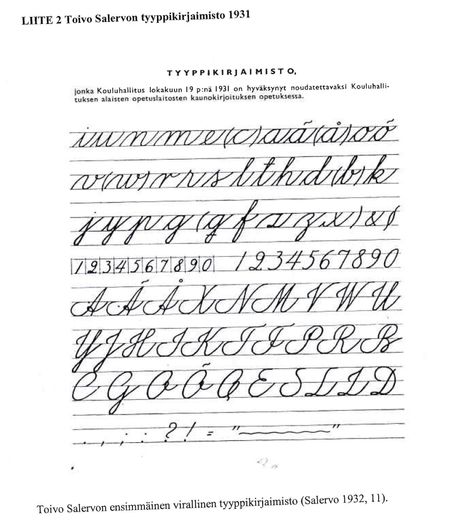 LIITE 2 Toivo Salervon tyyppikirjaimisto 1931
TYYPPIKIRJAIMISTO,
jonka Kouluhallitus lokakuun 19 p:nä 1931 on hyväksynyt noudatettavaksi Kouluhalli-
tuksen alaisten opetuslaitosten kaunokirjoituksen opetuksessa.
i u n m e (c) a ä (å) o ö
v (w) r r s l t h d (b) k
j y p g (q f a z x) & ß
1 2 3 4 5 6 7 8 9 0 1 2 3 4 5 6 7 8 9 0
A Ä Å X N M V W U
Y J H I K T F P R B
C G O Ö Q E S L Z D
. , ; : ? ! = " ~ "
Toivo Salervon ensimmäinen virallinen tyyppikirjaimisto (Salervo 1932, 11).